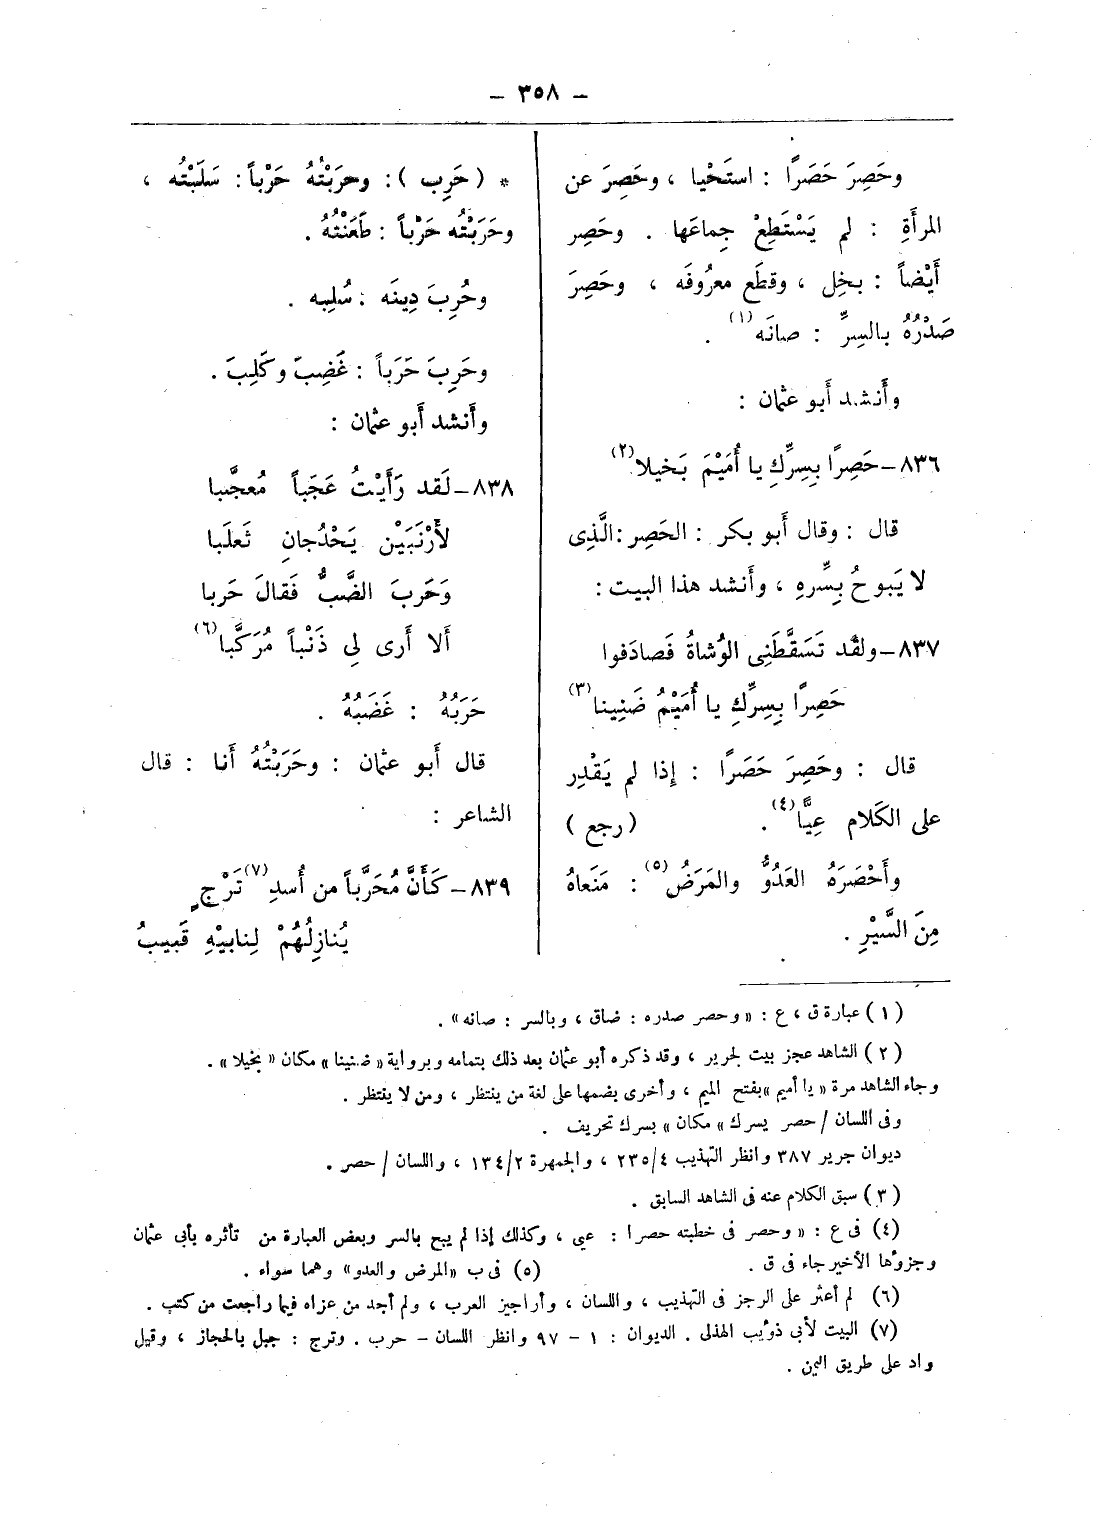 – ٣٥٨ –
وحَصِرَ حَصَرًا : استَحْيا ، وحَصِرَ عن
المرأَةِ : لم يَسْتَطِعْ جِماعَها . وحَصِر
أَيْضاً : بخِل ، وقطَع معرُوفَه ، وحَصِرَ
صَدْرُهُ بالسِرِّ : صانَه(١) .
وأَنشد أبو عثمان :
٨٣٦–حَصِرًا بِسِرِّكِ يا أُمَيْمَ بَخيلا(٢)
قال : وقال أبو بكر : الحَصِر : الَّذِى
لا يَبوحُ بِسِّرهِ ، وأَنشد هذا البيت :
٨٣٧–ولقَد تَسَقَّطَنِى الوُشاةُ فَصادَفوا
حَصِرًا بِسِرِّكِ يا أُمَيْمُ ضَنِينا(٣)
قال : وحَصِرَ حَصَرًا : إِذا لم يَقْدِر
على الكَلام عِيًّا(٤) . (رجع)
وأَحْصَرَهُ العَدُوُّ والمَرَضُ(٥) : مَنَعاهُ
مِنَ السَّيْرِ .
* (حَرِب) : وحرَبْتُهُ حَرْباً : سَلَبْتُه ،
وحَرَبْتُه حَرْباً : طَعَنْتُهُ .
وحُرِبَ دِينَه : سُلِبه .
وحَرِبَ حَرَباً : غَضِبَ وكَلِبَ .
وأَنشد أَبو عثمان :
٨٣٨–لَقد رَأَيْتُ عَجَباً مُعجَّببا
لأَرْنَبَيْن يَحْدُجانِ ثَعلَبا
وَحَربَ الضَّبُّ فَقالَ حَربا
أَلا أَرى لِى ذَنْباً مُرَكَّبا(٦)
حَرَبُهُ : غَضَبُهُ .
قال أَبو عثمان : وحَرَبْتُهُ أَنا : قال
الشاعر :
٨٣٩–كَأَنَّ مُحَرَّباً من أُسدِ(٧) تَرْجٍ
يُنازِلُهُمْ لِنابيْهِ قَبيبُ
(١) عبارة ق ، ع : «وحصر صدره : ضاق ، وبالسر : صانه» .
(٢) الشاهد عجز بيت لجرير ، وقد ذكره أبو عثمان بعد ذلك بتمامه وبرواية «ضنينا» مكان «بخيلا» .
وجاء الشاهد مرة «يا أميم» بفتح الميم ، وأخرى بضمها على لغة من ينتظر ، ومن لا ينتظر .
وفى اللسان / حصر يسرك» مكان» بسرك تحريف .
ديوان جرير ٣٨٧ وانظر التهذيب ٢٣٥/٤ ، والجمهرة ١٣٤/٢ ، واللسان / حصر .
(٣) سبق الكلام عنه فى الشاهد السابق .
(٤) فى ع : «وحصر فى خطبته حصرا : عيى ، وكذلك إذا لم يبح بالسر وبعض العبارة من تأثره بأبى عثمان
وجزؤها الأخير جاء فى ق . (٥) فى ب «المرض والعدو» وهما سواء .
(٦) لم أعثر على الرجز فى التهذيب ، واللسان ، وأراجيز العرب ، ولم أجد من عزاه فيما راجعت من كتب .
(٧) البيت لأبى ذؤيب الهذلى . الديوان : ١ – ٩٧ وانظر اللسان – حرب . وترج : جبل بالحجاز ، وقيل
واد على طريق اليمن .